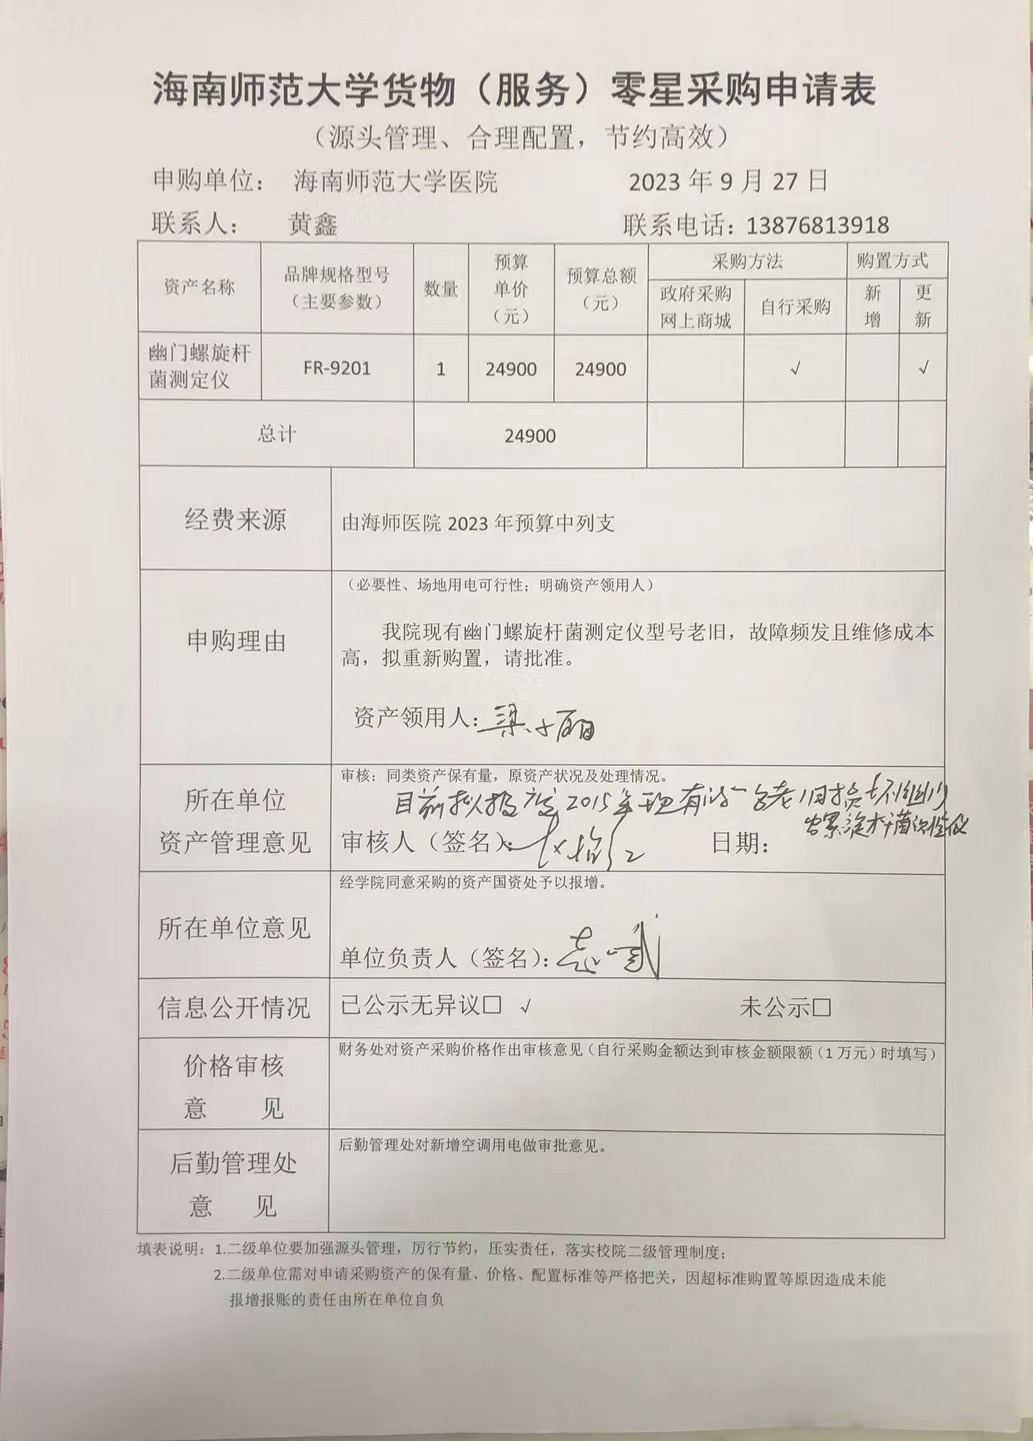 海南师范大学货物（服务）零星采购申请表
（源头管理、合理配置，节约高效）
申购单位： 海南师范大学医院 2023 年 9 月 27 日
联系人： 黄鑫 联系电话：13876813918
资产名称 品牌规格型号（主要参数） 数量 预算单价（元） 预算总额（元） 采购方法 购置方式
政府采购网上商城 自行采购 新增 更新
幽门螺旋杆菌测定仪 FR-9201 1 24900 24900 √ √
总计 24900
经费来源 由海师医院 2023 年预算中列支
申购理由 （必要性、场地用电可行性；明确资产领用人）
我院现有幽门螺旋杆菌测定仪型号老旧，故障频发且维修成本
高，拟重新购置，请批准。
资产领用人：
所在单位
资产管理意见
审核：同类资产保有量，原资产状况及处理情况。
目前拟报废2015年现有的一台老旧损坏
审核人（签名）： 日期：
所在单位意见
经学院同意采购的资产国资处予以报增。
单位负责人（签名）：
信息公开情况 已公示无异议□ √ 未公示□
价格审核
意 见
财务处对资产采购价格作出审核意见（自行采购金额达到审核金额限额（1 万元）时填写）
后勤管理处
意 见
后勤管理处对新增空调用电做审批意见。
填表说明：1.二级单位要加强源头管理，厉行节约，压实责任，落实校院二级管理制度；
2.二级单位需对申请采购资产的保有量、价格、配置标准等严格把关，因超标准购置等原因造成未能
报增报账的责任由所在单位自负